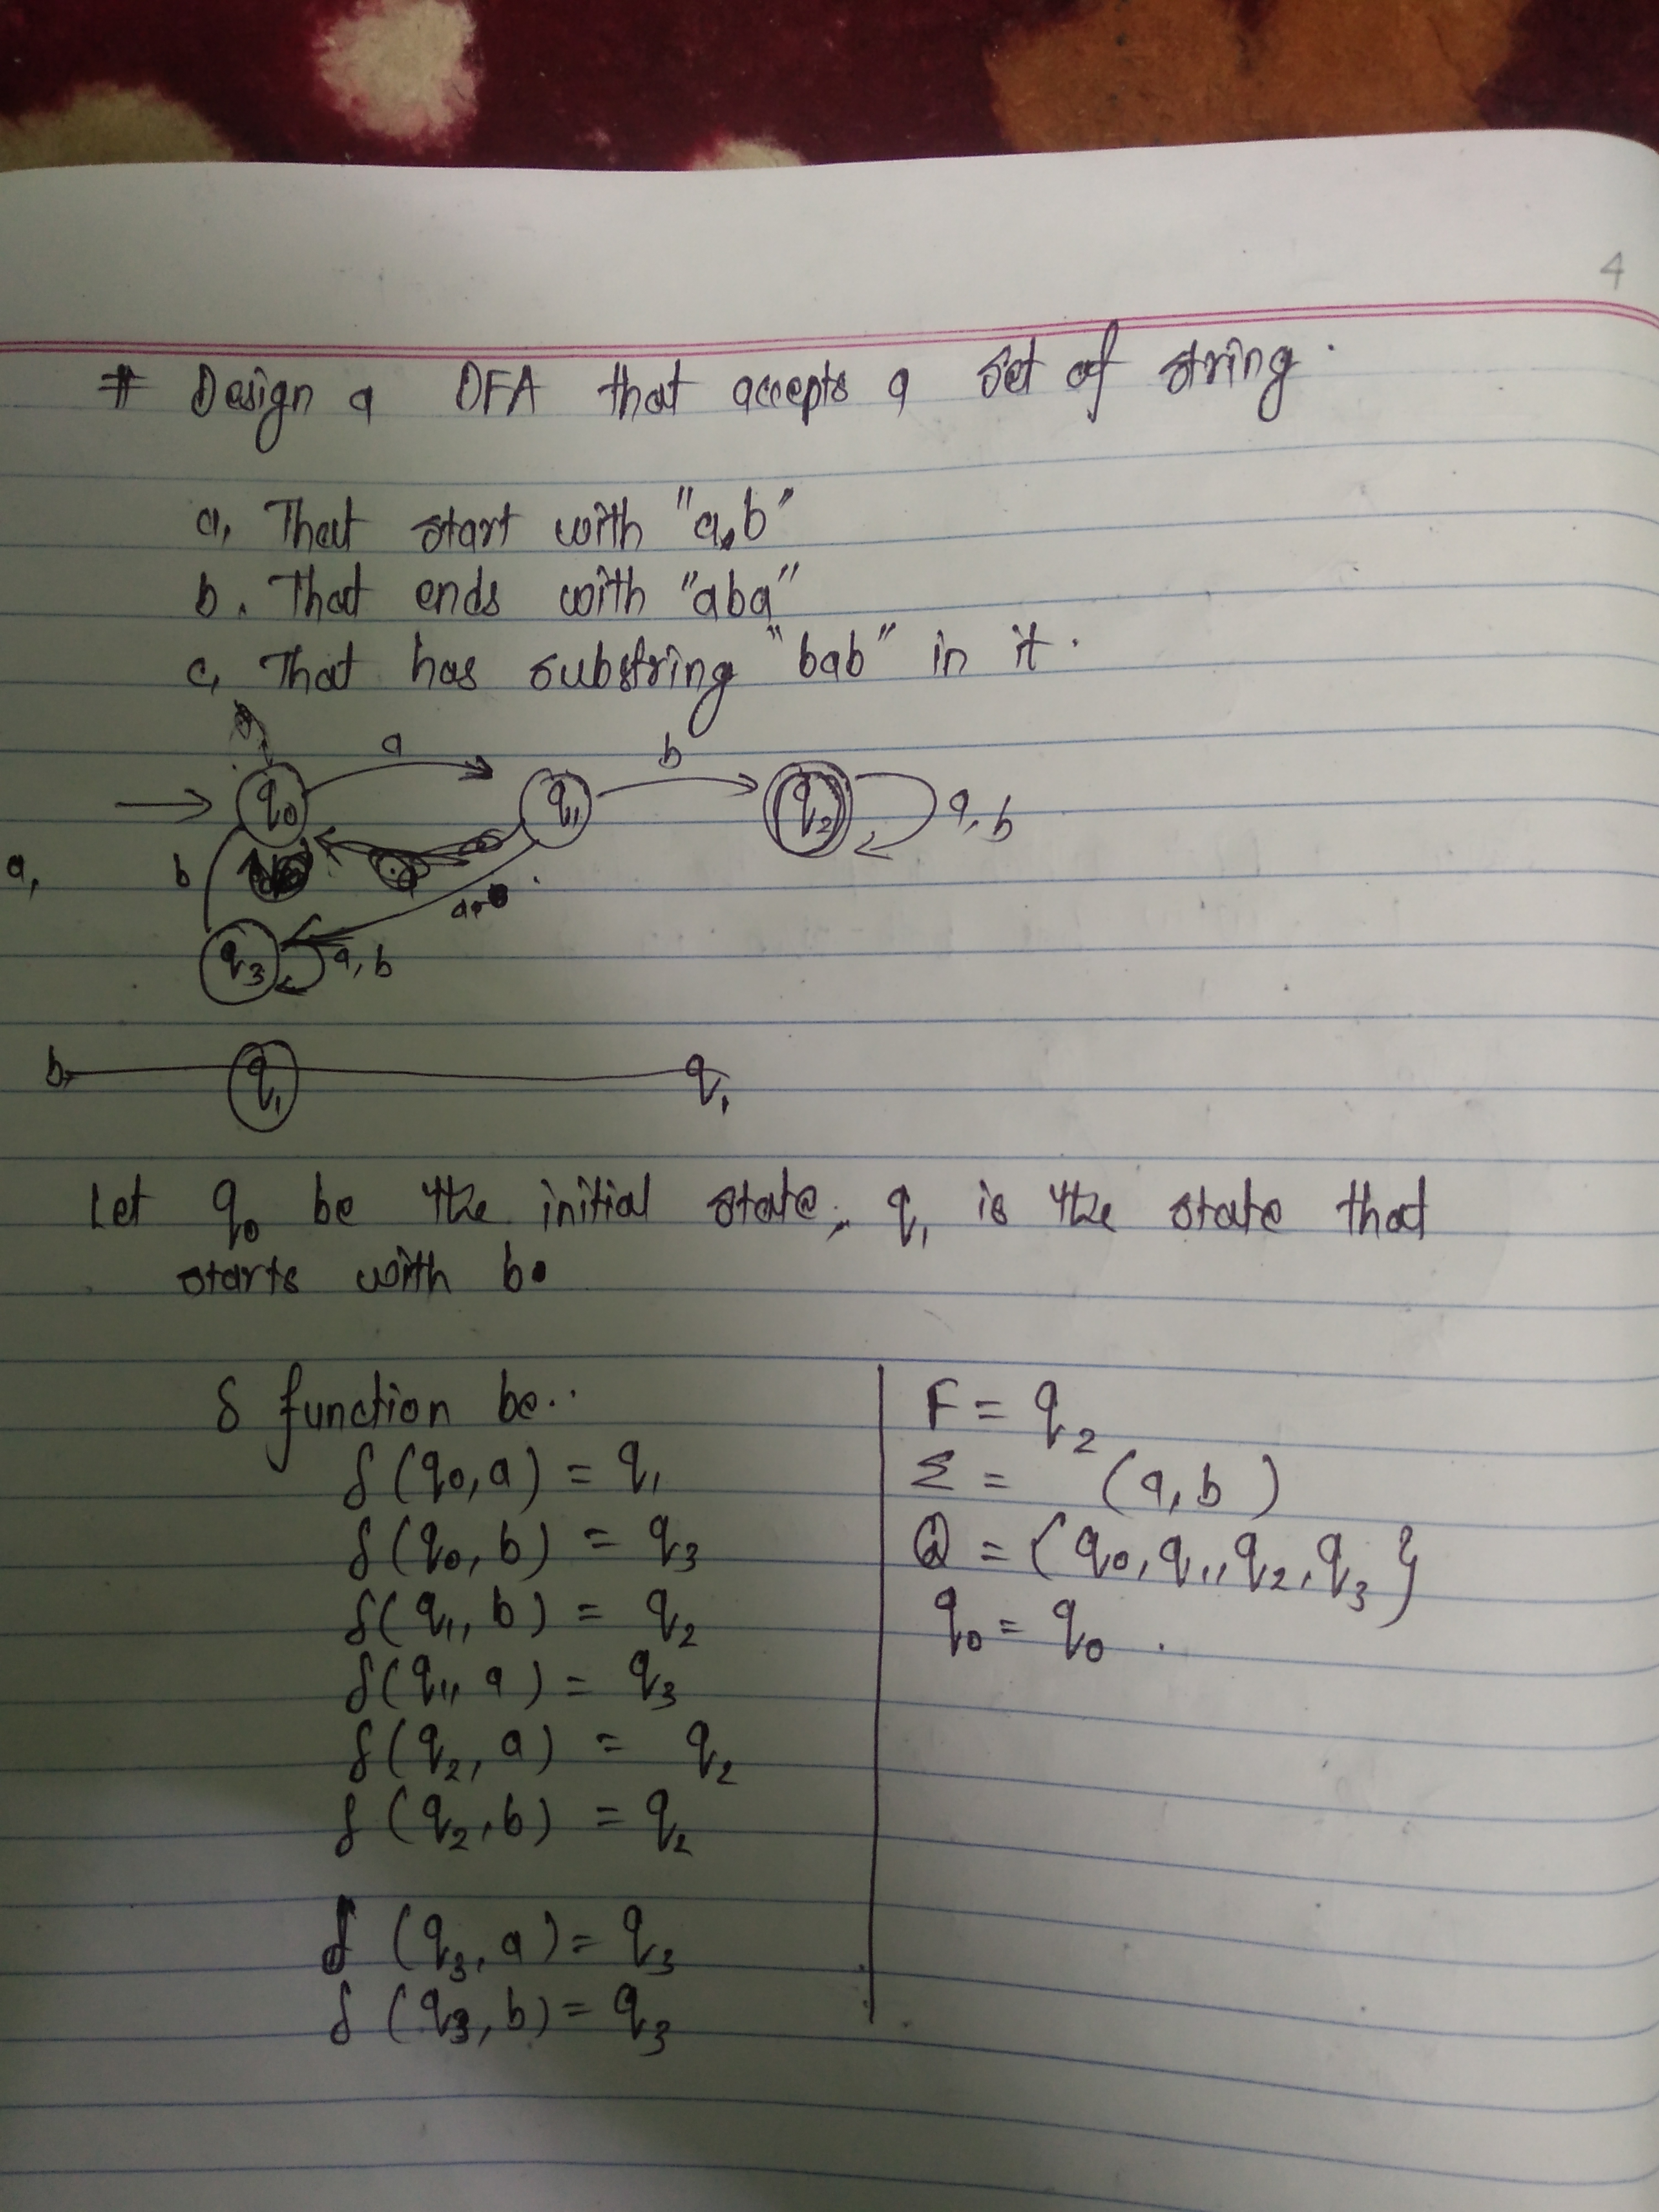 4
# Design a DFA that accepts a set of string.
a, That start with "a,b"
b. That ends with "aba"
c, That has substring "bab" in it.
q0 a q1 b q2 a,b
a, b a,
q3 a,b
b, q1 q1
Let q0 be the initial state, q1 is the state that
starts with b.
δ function be..
δ(q0,a) = q1
δ(q0,b) = q3
δ(q1,b) = q2
δ(q1,a) = q3
δ(q2,a) = q2
δ(q2,b) = q2
δ(q3,a) = q3
δ(q3,b) = q3
F = q2
Σ = (a,b)
Q = {q0,q1,q2,q3}
q0 = q0.